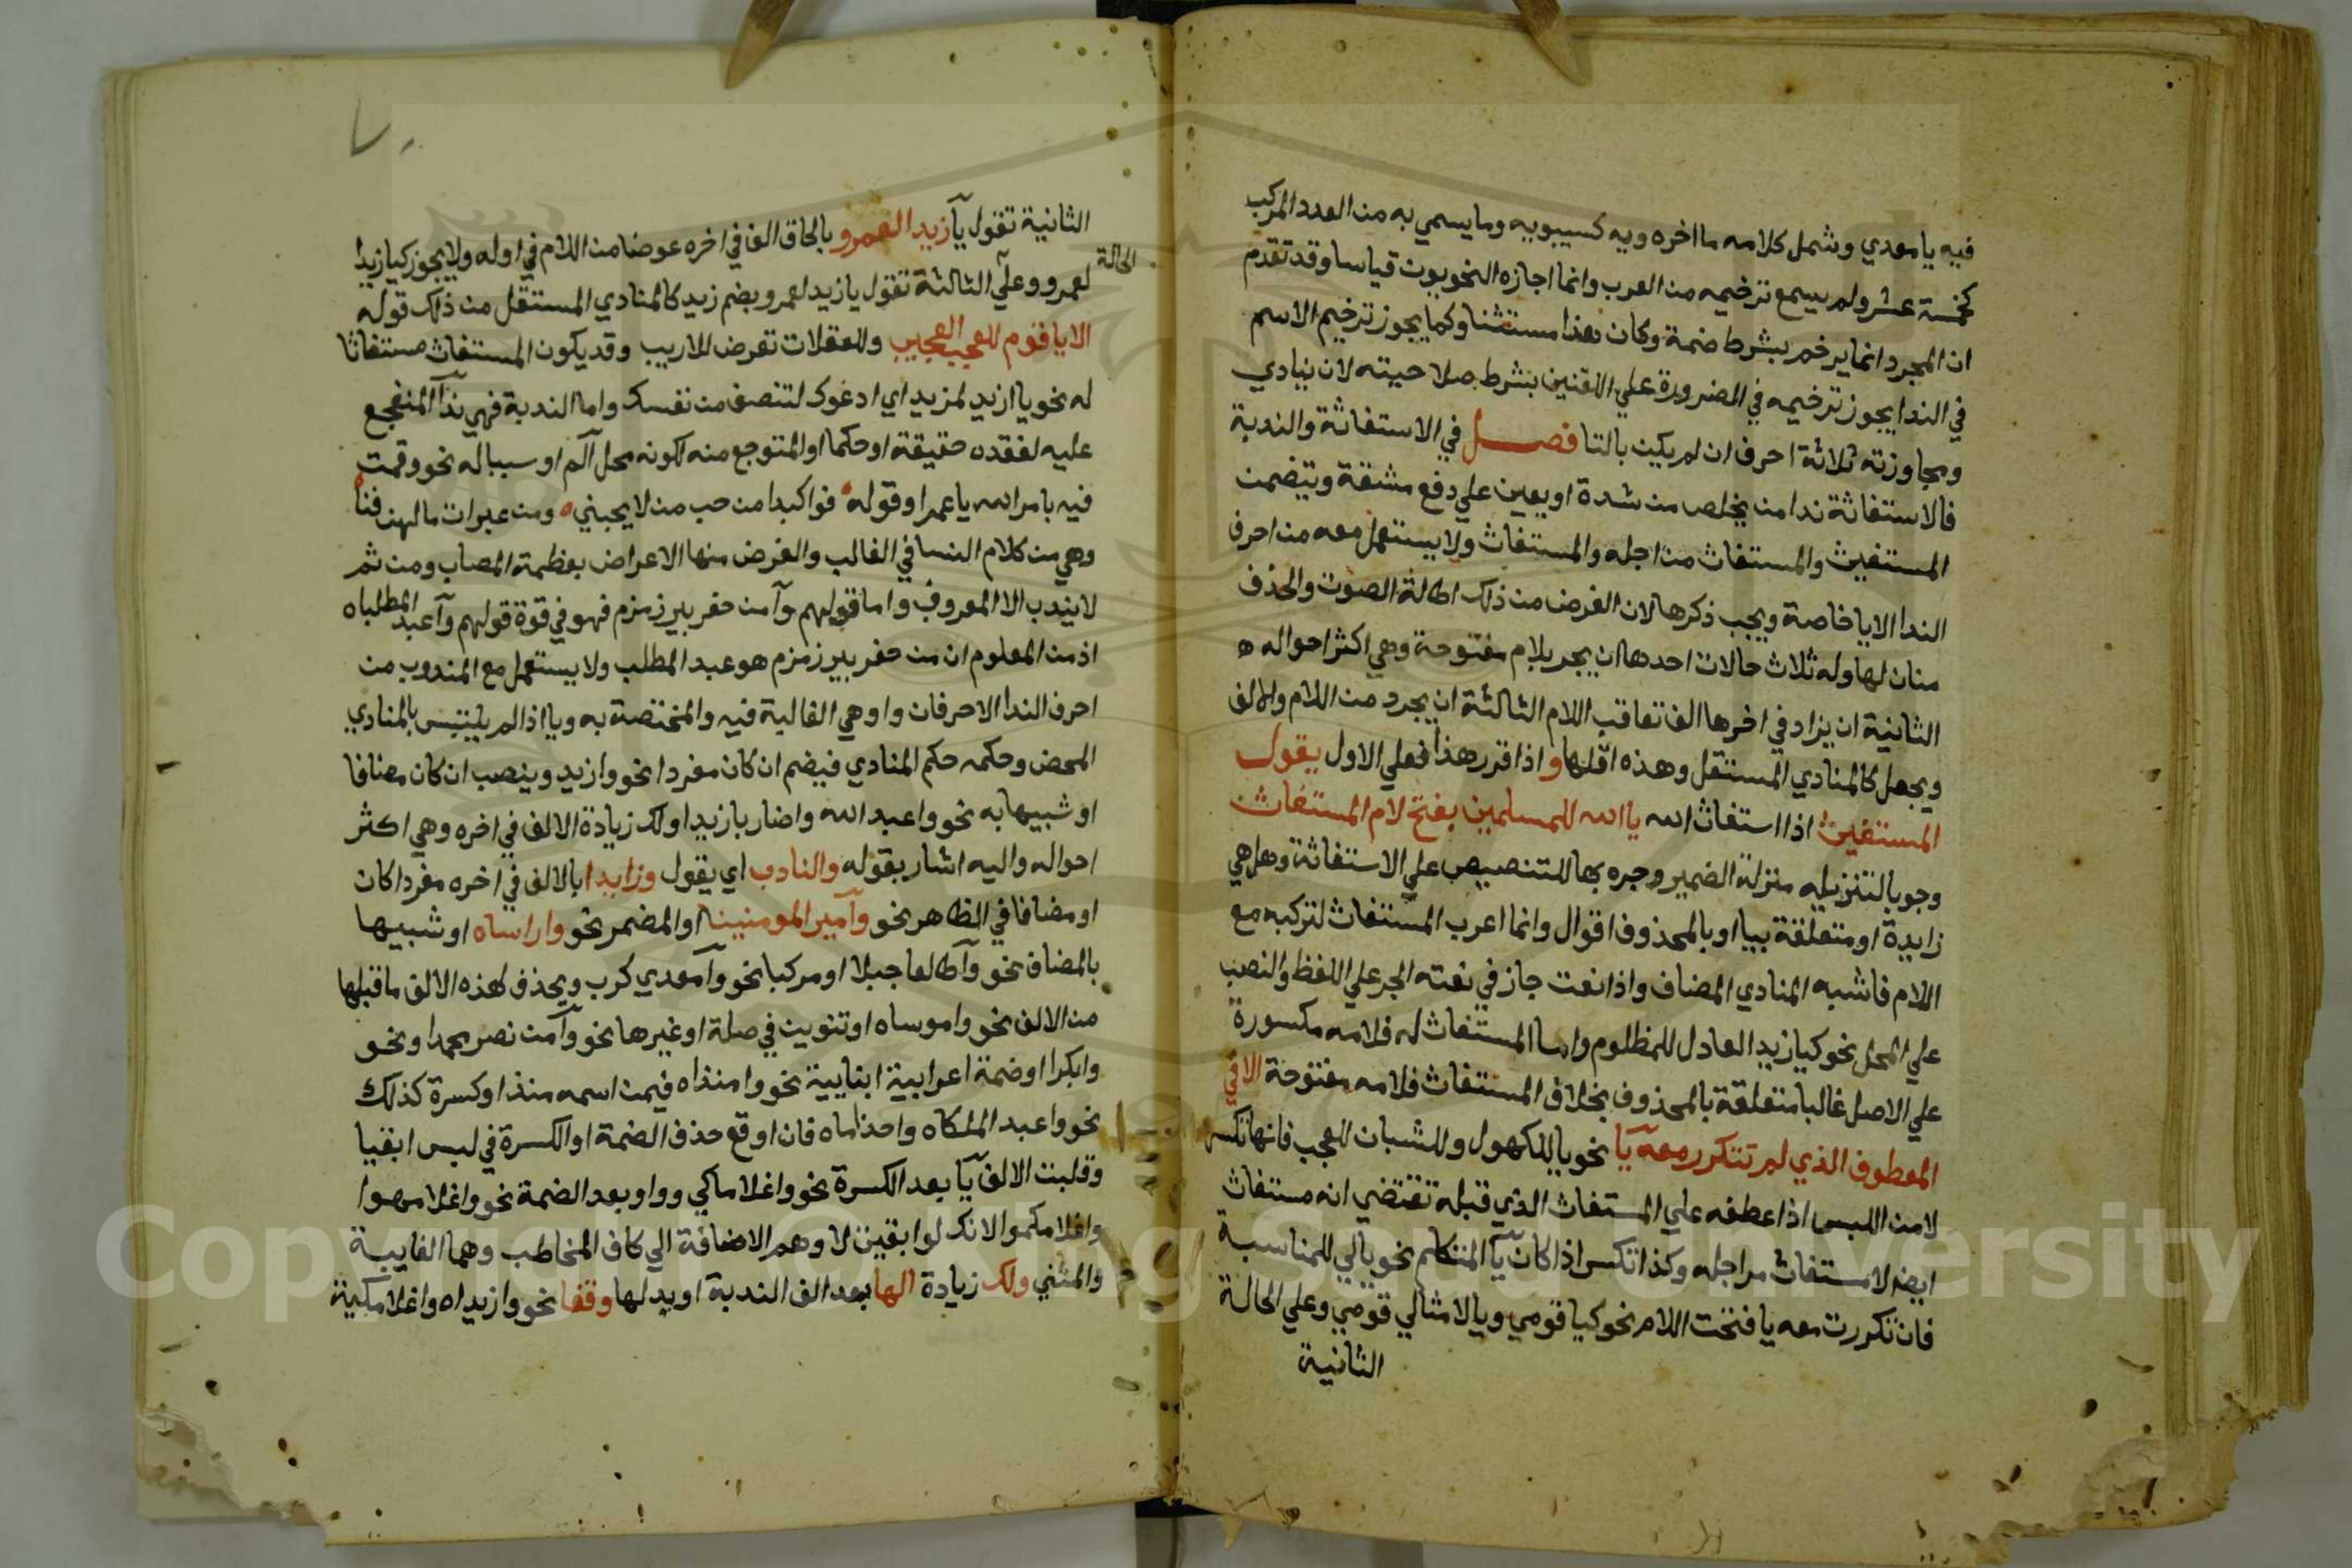 فيه يا معدي وشمل كلامه ما اخره ويه كسيبويه وما يسمي به من العدد المركب
كخمسة عشر ولم يسمع ترخيمه من العرب وانما اجازه النحويون قياسا وقد تقدم
ان المجرد انما يرخم بشرط ضمة وكان هذا مستثنا وكما يجوز ترخيم الاسم
في الندا يجوز ترخيمه في الضرورة علي اللغتين بشرط صلاحيته لان ينادي
ومجاوزته ثلاثة احرف ان لم يكن بالتا فصل في الاستغاثة والندبة
فالاستغاثة ندا من يخلص من شدة او يعين علي دفع مشقة وتيضمن
المستغيث والمستغاث من اجله والمستغاث ولا يستعمل معه من احرف
الندا الا يا خاصة ويجب ذكرها لان الغرض من ذلك اطالة الصوت والحذف
منان لها وله ثلاث حالات احدها ان يجر بلام مفتوحة وهي اكثر احواله ه
الثانية ان يزاد في اخرها الف تعاقب اللام الثالثة ان يجرد من اللام والالف
ويجعل كالمنادي المستقل وهذه اقلها و اذا قرر هذا فعلي الاول يقول
المستغيث اذا استغاث الله يا الله للمسلمين بفتح لام المستغاث
وجوبا لتنزيله منزلة الضمير وجره بها للتنصيص علي الاستغاثة وهل هي
زايدة او متعلقة بيا او بالمحذوف اقوال وانما اعرب المستغاث لتركبه مع
اللام فاشبه المنادي المضاف واذا نعت جاز في نعته الجر علي اللفظ والنصب
علي المحل نحو كيا زيد العادل للمظلوم واما المستغاث له فلامه مكسورة
علي الاصل غالبا متعلقة بالمحذوف بخلاف المستغاث فلامه مفتوحة الا في
المعطوف الذي لم تتكرر معه يآ نحو يا للكهول وللشبان للعجب فانها تكسر
لامن اللبس اذا عطفه علي المستغاث الذي قبله تقتضي انه مستغاث
ايضا لا مستغاث من اجله وكذا تكسر اذا كان يآ المتكلم نحو يا لي للمناسبة
فان تكررت معه يا فتحت اللام نحو كيا قومي ويا لا مثالي قومي وعلي الحالة
الثانية
الحالة
الثانية تقول يآ زيد العمرو بالحاق الف في اخره عوضا من اللام في اوله ولا يجوز كيا زيدا
لعمرو وعلي الثالثة تقول يا زيد لعمرو بضم زيد كالمنادي المستقل من ذلك قوله
الا يا قوم للعجب العجيب وللغفلات تعرض للاريب وقد يكون المستغاث مستغاثا
له نحو يا ازيد لمزيد اي ادعوك لتنصف من نفسك واما الندبة فهي ندآ المتفجع
عليه لفقده حقيقة او حكما او المتوجع منه لكونه محل الم او سببا له نحو وقمت
فيه بامر الله يا عمرا وقوله فوا كبدا من حب من لا يحبني ه ومن عبرات ما لهن فنا
وهي من كلام النسا في الغالب والغرض منها الاعراض بعظمة المصاب ومن ثم
لا يندب الا المعروف واما قولهم وآ من حفر بير زمزم فهو في قوة قولهم وآ عبد المطلباه
اذ من المعلوم ان من حفر بير زمزم هو عبد المطلب ولا يستعمل مع المندوب من
احرف الندا الا حرفان وا وهي الغالبة فيه والمختصة به ويا اذا لم يلتبس بالمنادي
المحض وحكمه حكم المنادي فيضم ان كان مفردا نحو وازيد وينصب ان كان مضافا
او شبيها به نحو واعبد الله واضاربا زيدا ولك زيادة الالف في اخره وهي اكثر
احواله واليه اشار بقوله والنادب اي يقول وزايدا بالالف في اخره مفردا كان
او مضافا في الظاهر نحو وآمير المومنينا او المضمر نحو واراساه او شبيها
بالمضاف نحو وآ طالعا جبلا او مركبا نحو وآ معدي كرب ويحذف لهذه الالف ما قبلها
من الالف نحو واموساه او تنوين في صلة او غيرها نحو وآ من نصر محمدا ونحو
وابكرا او ضمة اعرابية ابنايية نحو وامنذاه فيمن اسمه منذا وكسرة كذلك
نحو واعبد الملكاه واحذاماه فان اوقع حذف الضمة او الكسرة في لبس ابقيا
وقلبت الالف يآ بعد الكسرة نحو واغلاماكي وواو بعد الضمة نحو واغلامهوا
واغلامكموا لانك لو ابقيت لا وهم الاضافة الي كاف المخاطب وهما الغايبة
والمثني ولك زيادة الها بعد الف الندبة او بدلها وقفا نحو وازيداه واغلامكيه
Copyright © King Saud University